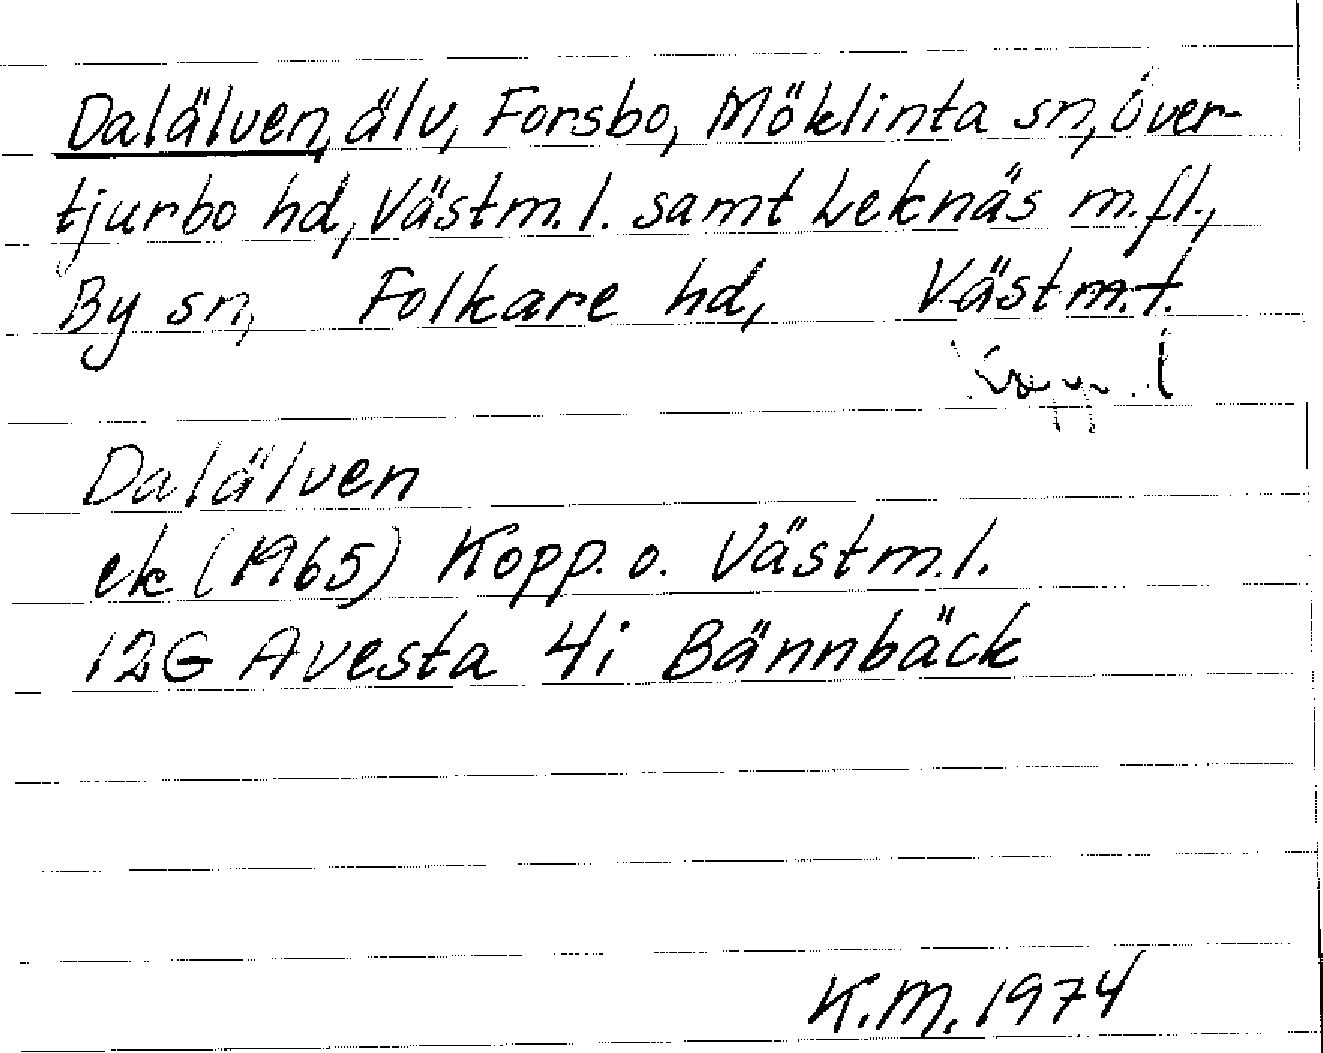 Dalälven, älv, Forsbo, Möklinta sn, Över-
tjurbo hd, Västm. l. samt Leknäs m.fl.,
By sn, Folkare hd, Västm. l.
Kopp. l
Dalälven
ek (1965) Kopp. o. Västm. l.
12G Avesta 4i Bännbäck
K.M. 1974